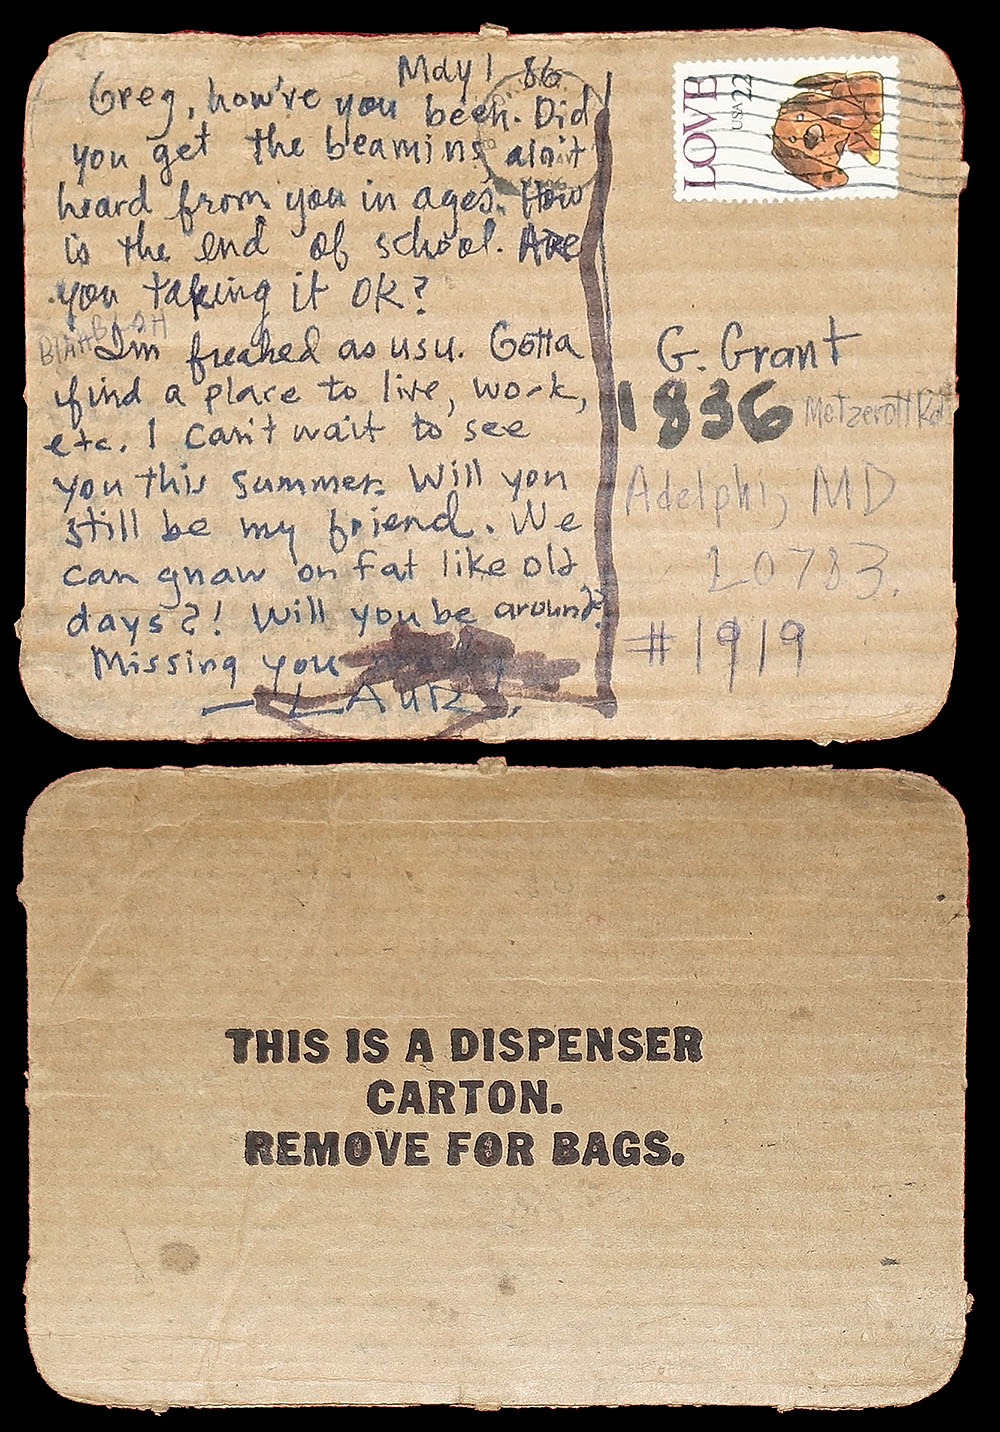 May 1 86
Greg, how're you been. Did
you get the beamins ain't
heard from you in ages. How
is the end of school. Are
you taking it OK?
BLAHBLAH
I'm freaked as usu. Gotta
find a place to live, work,
etc. I can't wait to see
you this summer. Will you
still be my friend. We
can gnaw on fat like old
days?! Will you be around?
Missing you
— LAUR
LOVE
USA 22
G. Grant
1836 Metzerott Rd
Adelphi, MD
20783.
#1919
THIS IS A DISPENSER
CARTON.
REMOVE FOR BAGS.